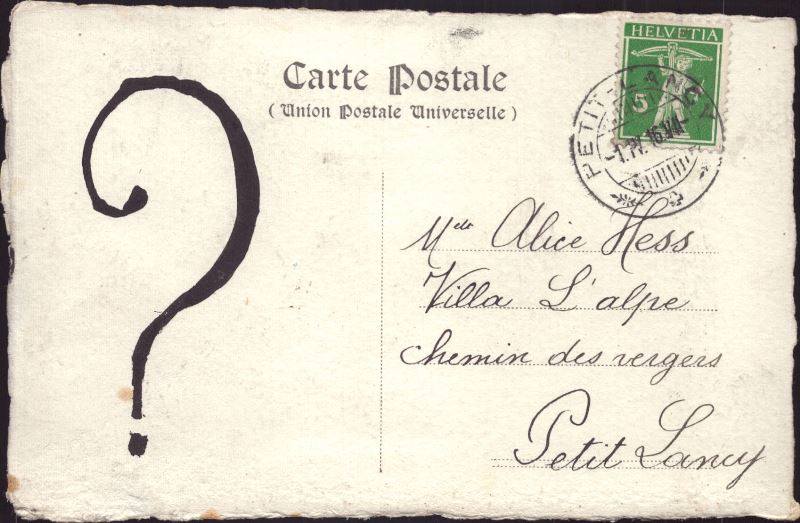 ?
Carte Postale
( Union Postale Universelle )
HELVETIA
5
PETIT-LANCY
Mlle Alice Hess
Villa L'alpe
Chemin des vergers
Petit Lancy